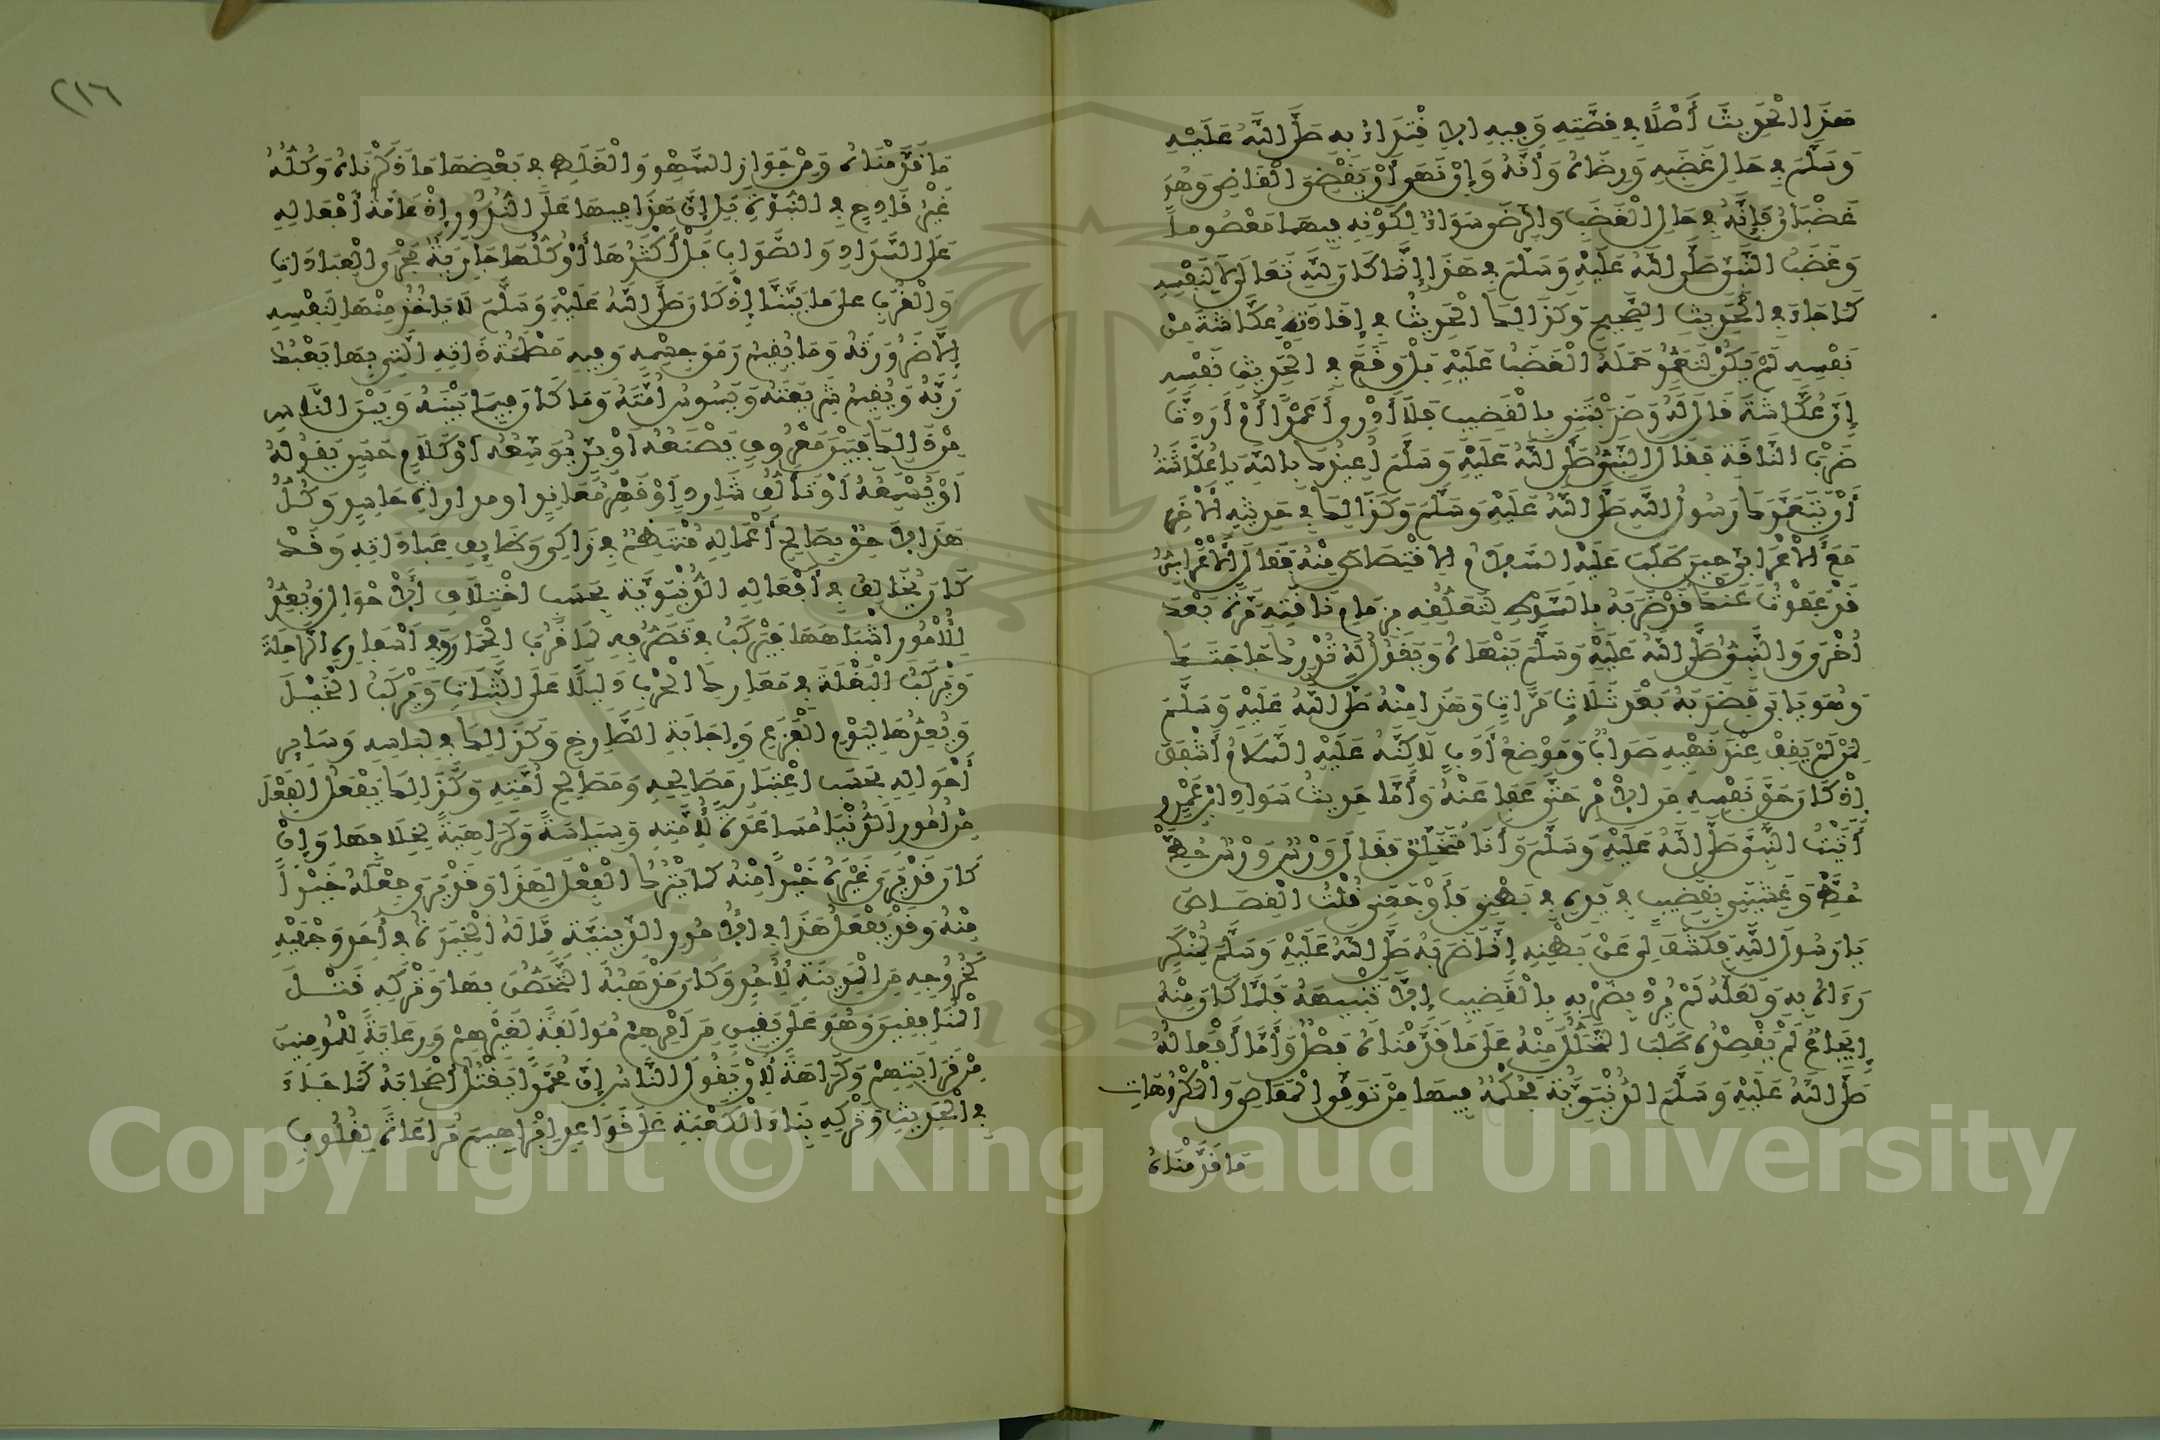 هَذَا الْحَدِيثُ أَصْلًا فِي قِصَّتِهِ وَفِيهِ الِاقْتِدَاءُ بِهِ صَلَّى اللَّهُ عَلَيْهِ
وَسَلَّمَ فِي حَالِ غَضَبِهِ وَرِضَاهُ وَأَنَّهُ وَإِنْ نَهَى أَنْ يَقْضِيَ الْقَاضِي وَهُوَ
غَضْبَانُ فَإِنَّهُ فِي حَالِ الْغَضَبِ وَالرِّضَى سَوَاءٌ لِكَوْنِهِ فِيهِمَا مَعْصُومًا
وَغَضَبُ النَّبِيِّ صَلَّى اللَّهُ عَلَيْهِ وَسَلَّمَ فِي هَذَا إِنَّمَا كَانَ لِلَّهِ تَعَالَى لَا لِنَفْسِهِ
كَمَا جَاءَ فِي الْحَدِيثِ الصَّحِيحِ وَكَذَلِكَ الْحَدِيثُ فِي إِقَادَتِهِ عُكَّاشَةَ مِنْ
نَفْسِهِ لَمْ يَكُنْ لِتَعَمُّدٍ حَمَلَهُ الْغَضَبُ عَلَيْهِ بَلْ وَقَعَ فِي الْحَدِيثِ نَفْسِهِ
إِنَّ عُكَّاشَةَ قَالَ لَهُ وَضَرَبْتَنِي بِالْقَضِيبِ فَلَا أَدْرِي أَعَمْدًا أَمْ أَرَدْتَ
ضَرْبَ النَّاقَةِ فَقَالَ النَّبِيُّ صَلَّى اللَّهُ عَلَيْهِ وَسَلَّمَ أُعِيذُكَ بِاللَّهِ يَا عُكَّاشَةُ
أَنْ يَتَعَمَّدَكَ رَسُولُ اللَّهِ صَلَّى اللَّهُ عَلَيْهِ وَسَلَّمَ وَكَذَلِكَ فِي حَدِيثِهِ الْآخَرِ
مَعَ الْأَعْرَابِيِّ حِينَ طَلَبَ عَلَيْهِ السَّلَامُ الِاقْتِصَاصَ مِنْهُ فَقَالَ الْأَعْرَابِيُّ
قَدْ عَفَوْتُ عَنْكَ قَدْ ضَرَبَهُ بِالسَّوْطِ لِتَعَلُّقِهِ بِزِمَامِ نَاقَتِهِ مَرَّةً بَعْدَ
أُخْرَى وَالنَّبِيُّ صَلَّى اللَّهُ عَلَيْهِ وَسَلَّمَ يَنْهَاهُ وَيَقُولُ لَهُ تُدْرِكُ حَاجَتَكَ
وَهُوَ يَأْبَى فَضَرَبَهُ بَعْدَ ثَلَاثِ مَرَّاتٍ وَهَذَا مِنْهُ صَلَّى اللَّهُ عَلَيْهِ وَسَلَّمَ
لِمَنْ لَمْ يَقِفْ عِنْدَ نَهْيِهِ صَوَابٌ وَمَوْضِعُ أَدَبٍ لَاكِنَّهُ عَلَيْهِ السَّلَامُ أَشْفَقَ
إِذْ كَانَ حَقَّ نَفْسِهِ مِنَ الْأَمْرِ حَتَّى عَفَا عَنْهُ وَأَمَّا حَدِيثُ سَوَادِ ابْنِ عَمْرٍو
أَتَيْتُ النَّبِيَّ صَلَّى اللَّهُ عَلَيْهِ وَسَلَّمَ وَأَنَا مُتَخَلِّقٌ فَقَالَ وَرْسٌ وَرْسٌ حُطَّ
حُطَّ وَغَشِيَنِي بِقَضِيبٍ فِي يَدِهِ فِي بَطْنِي فَأَوْجَعَنِي قُلْتُ الْقِصَاصَ
يَا رَسُولَ اللَّهِ فَكَشَفَ لِي عَنْ بَطْنِهِ إِنَّمَا ضَرَبَهُ صَلَّى اللَّهُ عَلَيْهِ وَسَلَّمَ لِمُنْكَرٍ
رَءَاهُ بِهِ وَلَعَلَّهُ لَمْ يُرِدْ بِضَرْبِهِ بِالْقَضِيبِ إِلَّا تَنْبِيهَهُ فَلَمَّا كَانَ مِنْهُ
إِيجَاعٌ لَمْ يَقْصِدْهُ طَلَبَ التَّحَلُّلَ مِنْهُ عَلَى مَا قَدَّمْنَاهُ فَصْلٌ وَأَمَّا أَفْعَالُهُ
صَلَّى اللَّهُ عَلَيْهِ وَسَلَّمَ الدُّنْيَوِيَّةُ فَحُكْمُهُ فِيهَا مِنْ تَوَقِّي الْمَعَاصِي وَالْمَكْرُوهَاتِ
مَا قَدَّمْنَاهُ
٢١٦
مَا قَدَّمْنَاهُ وَمِنْ جَوَازِ السَّهْوِ وَالْغَلَطِ فِي بَعْضِهَا مَا ذَكَرْنَاهُ وَكُلُّهُ
غَيْرُ قَادِحٍ فِي النُّبُوَّةِ بَلْ إِنَّ هَذَا فِيهَا عَلَى النُّدُورِ إِذْ عَامَّةُ أَفْعَالِهِ
عَلَى السَّدَادِ وَالصَّوَابِ بَلْ أَكْثَرُهَا أَوْ كُلُّهَا جَارِيَةٌ مَجْرَى الْعِبَادَاتِ
وَالْقُرَبِ عَلَى مَا بَيَّنَّا إِذْ كَانَ صَلَّى اللَّهُ عَلَيْهِ وَسَلَّمَ لَا يَأْخُذُ مِنْهَا لِنَفْسِهِ
إِلَّا ضَرُورَتَهُ وَمَا يُقِيمُ رَمَقَ جِسْمِهِ وَفِيهِ مَصْلَحَةُ ذَاتِهِ الَّتِي بِهَا يَعْبُدُ
رَبَّهُ وَيُقِيمُ شَرِيعَتَهُ وَيَسُوسُ أُمَّتَهُ وَمَا كَانَ فِيمَا بَيْنَهُ وَبَيْنَ النَّاسِ
مِنْ ذَلِكَ فَبَيْنَ مَعْرُوفٍ يَصْنَعُهُ أَوْ بِرٍّ يُوَسِّعُهُ أَوْ كَلَامٍ حَسَنٍ يَقُولُهُ
أَوْ يُسْمِعُهُ أَوْ تَأَلُّفِ شَارِدٍ أَوْ قَهْرِ مُعَانِدٍ أو مداراة حَاسِدٍ وَكُلُّ
هَذَا لَاحِقٌ بِصَالِحِ أَعْمَالِهِ مُنْتَظِمٌ فِي زَاكِي وَظَايِفِ عِبَادَاتِهِ وَقَدْ
كَانَ يُخَالِفُ فِي أَفْعَالِهِ الدُّنْيَوِيَّةِ بِحَسَبِ اخْتِلَافِ الْأَحْوَالِ وَيُعِدُّ
لِلْأُمُورِ أَشْبَاهَهَا فَيَرْكَبُ فِي تَصَرُّفِهِ لِمَا قَرُبَ الْحِمَارَ وَفِي أَسْفَارِهِ الرَّاحِلَةَ
وَيَرْكَبُ الْبَغْلَةَ فِي مَعَارِكِ الْحَرْبِ دَلِيلًا عَلَى الثَّبَاتِ وَيَرْكَبُ الْخَيْلَ
وَيُعِدُّهَا لِيَوْمِ الْفَزَعِ وَإِجَابَةِ الصَّارِخِ وَكَذَلِكَ فِي لِبَاسِهِ وَسَايِرِ
أَحْوَالِهِ بِحَسَبِ اعْتِبَارِ مَصَالِحِهِ وَمَصَالِحِ أُمَّتِهِ وَكَذَلِكَ يَفْعَلُ الْفِعْلَ
مِنْ أُمُورِ الدُّنْيَا مُسَاعَدَةً لِأُمَّتِهِ وَسِيَاسَةً وَكَرَاهِيَةً لِخِلَافِهَا وَإِنْ
كَانَ قَدْ يَرَى غَيْرَهُ خَيْرًا مِنْهُ كَمَا يَتْرُكُ الْفِعْلَ لِهَذَا وَقَدْ يَرَى فِعْلَهُ خَيْرًا
مِنْهُ وَقَدْ يَفْعَلُ هَذَا فِي الْأُمُورِ الدِّينِيَّةِ مِمَّا لَهُ الْخِيَرَةُ فِي أَحَدِ وَجْهَيْهِ
كَخُرُوجِهِ مِنَ الْمَدِينَةِ لِأُحُدٍ وَكَانَ مَذْهَبُهُ التَّحَصُّنَ بِهَا وَتَرْكِهِ قَتْلَ
الْمُنَافِقِينَ وَهُوَ عَلَى يَقِينٍ مِنْ أَمْرِهِمْ مُؤَالَفَةً لِغَيْرِهِمْ وَرِعَايَةً لِلْمُومِنِينَ
مِنْ قَرَابَتِهِمْ وَكَرَاهَةً لِأَنْ يَقُولَ النَّاسُ إِنَّ مُحَمَّدًا يَقْتُلُ أَصْحَابَهُ كَمَا جَاءَ
فِي الْحَدِيثِ وَتَرْكِهِ بِنَاءَ الْكَعْبَةِ عَلَى قَوَاعِدِ إِبْرَاهِيمَ مُرَاعَاةً لِقُلُوبِ
Copyright © King Saud University
1957